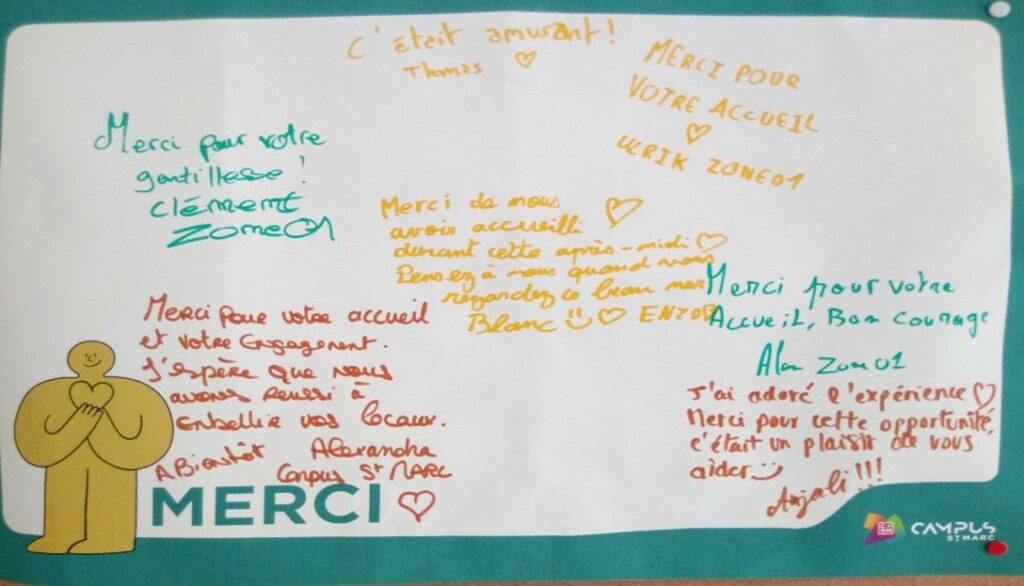 C'était amusant!
Thomas
MERCI POUR
VOTRE ACCUEIL
ULRIK ZONE01
Merci pour votre
gentillesse!
Clément
Zone01
Merci de nous
avoir accueilli
durant cette après-midi
Pensez à nous quand vous
regardez ce beau mur
Blanc ENZO
Merci pour votre
Accueil, Bon courage
Alan Zone01
Merci pour votre accueil
et votre Engagement.
J'espère que nous
avons reussi à
Embellir vos locaux.
A Bientôt Alexandra
Campus St MARC
J'ai adoré l'expérience
Merci pour cette opportunité,
c'était un plaisir de vous
aider
Anjali!!!
MERCI
CAMPUS
ST MARC